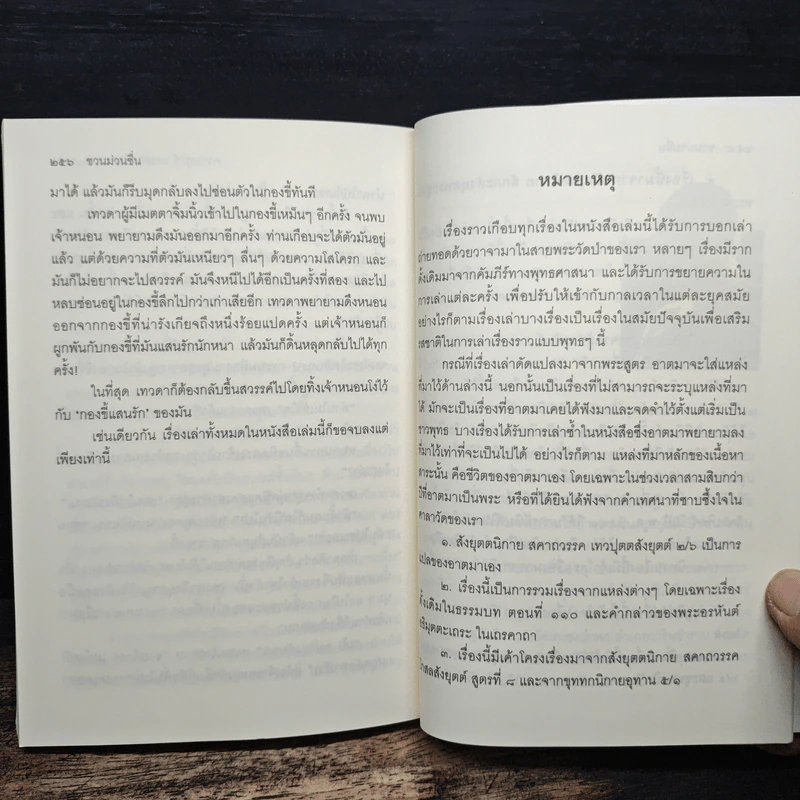 ๒๕๖ ชวนม่วนชื่น
มาได้ แล้วมันก็รีบมุดกลับลงไปซ่อนตัวในกองขี้ทันที
เทวดาผู้มีเมตตาจิ้มนิ้วเข้าไปในกองขี้เหม็นๆ อีกครั้ง จนพบ
เจ้าหนอน พยายามดึงมันออกมาอีกครั้ง ท่านเกือบจะได้ตัวมันอยู่
แล้ว แต่ด้วยความที่ตัวมันเหนียวๆ ลื่นๆ ด้วยความโสโครก และ
มันก็ไม่อยากจะไปสวรรค์ มันจึงหนีไปได้อีกเป็นครั้งที่สอง และไป
หลบซ่อนอยู่ในกองขี้ลึกไปกว่าเก่าเสียอีก เทวดาพยายามดึงหนอน
ออกจากกองขี้ที่น่ารังเกียจถึงหนึ่งร้อยแปดครั้ง แต่เจ้าหนอนก็
ผูกพันกับกองขี้ที่มันแสนรักนักหนา แล้วมันก็ดิ้นหลุดกลับไปได้ทุก
ครั้ง!
ในที่สุด เทวดาก็ต้องกลับขึ้นสวรรค์ไปโดยทิ้งเจ้าหนอนโง่ไว้
กับ ‘กองขี้แสนรัก’ ของมัน
เช่นเดียวกัน เรื่องเล่าทั้งหมดในหนังสือเล่มนี้ก็ขอจบลงแต่
เพียงเท่านี้
หมายเหตุ
เรื่องราวเกือบทุกเรื่องในหนังสือเล่มนี้ได้รับการบอกเล่า
ถ่ายทอดด้วยวาจามาในสายพระวัดป่าของเรา หลายๆ เรื่องมีราก
ดั้งเดิมมาจากคัมภีร์ทางพุทธศาสนา และได้รับการขยายความใน
การเล่าแต่ละครั้ง เพื่อปรับให้เข้ากับกาลเวลาในแต่ละยุคสมัย
อย่างไรก็ตามเรื่องเล่าบางเรื่องเป็นเรื่องในสมัยปัจจุบันเพื่อเสริม
รสชาติในการเล่าเรื่องราวแบบพุทธๆ นี้
กรณีที่เรื่องเล่าดัดแปลงมาจากพระสูตร อาตมาจะใส่แหล่ง
ที่มาไว้ด้านล่างนี้ นอกนั้นเป็นเรื่องที่ไม่สามารถจะระบุแหล่งที่มา
ได้ มักจะเป็นเรื่องที่อาตมาเคยได้ฟังมาและจดจำไว้ตั้งแต่เริ่มเป็น
ชาวพุทธ บางเรื่องได้รับการเล่าซ้ำในหนังสือซึ่งอาตมาพยายามลง
ที่มาไว้เท่าที่จะเป็นไปได้ อย่างไรก็ตาม แหล่งที่มาหลักของเนื้อหา
สาระนั้น คือชีวิตของอาตมาเอง โดยเฉพาะในช่วงเวลาสามสิบกว่า
ปีที่อาตมาเป็นพระ หรือที่ได้ยินได้ฟังจากคำเทศนาที่ซาบซึ้งใจใน
ศาลาวัดของเรา
๑. สังยุตตนิกาย สคาถวรรค เทวปุตตสังยุตต์ ๒/๖ เป็นการ
แปลของอาตมาเอง
๒. เรื่องนี้เป็นการรวมเรื่องจากแหล่งต่างๆ โดยเฉพาะเรื่อง
ดั้งเดิมในธรรมบท ตอนที่ ๑๑๐ และคำกล่าวของพระอรหันต์
อธิมุตตะเถระ ในเถรคาถา
๓. เรื่องนี้มีเค้าโครงเรื่องมาจากสังยุตตนิกาย สคาถวรรค
โกสลสังยุตต์ สูตรที่ ๘ และจากขุททกนิกายอุทาน ๕/๑